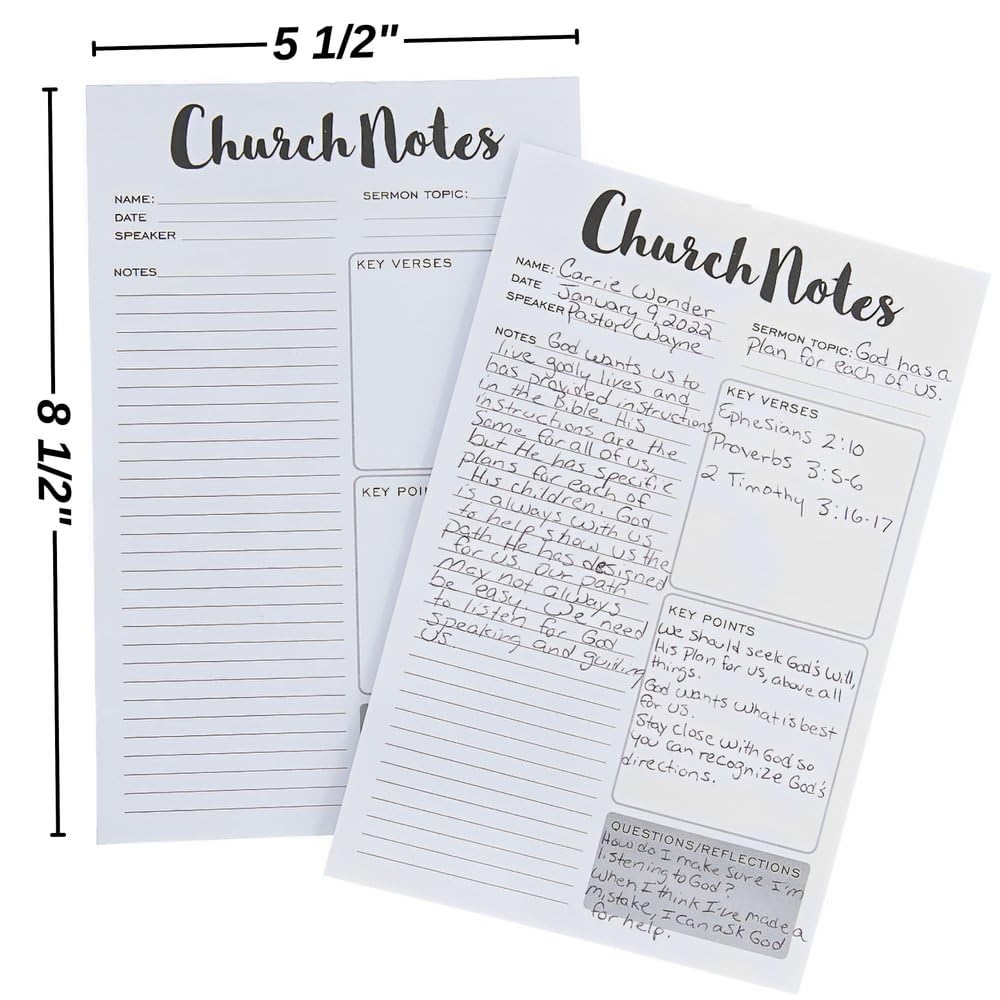 5 1/2"
8 1/2"
Church Notes
NAME:
DATE
SPEAKER
SERMON TOPIC:
NOTES
KEY VERSES
KEY POIN
Church Notes
NAME: Carrie Wonder
DATE January 9, 2022
SPEAKER Pastor Wayne
SERMON TOPIC: God has a
Plan for each of us.
NOTES God wants us to
live godly lives and
has provided instructions
in the Bible. His
instructions are the
same for all of us,
but He has specific
plans for each of
His children. God
is always with us
to help show us the
path He has designed
for us. Our path
may not always
be easy. We need
to listen for God
speaking and guiding
us
KEY VERSES
Ephesians 2:10
Proverbs 3:5-6
2 Timothy 3:16-17
KEY POINTS
We should seek God's Will,
His Plan for us, above all
things.
God wants what is best
for us.
Stay close with God so
you can recognize God's
directions.
QUESTIONS/REFLECTIONS
How do I make sure I'm
listening to God?
When I think I've made a
mistake, I can ask God
for help.